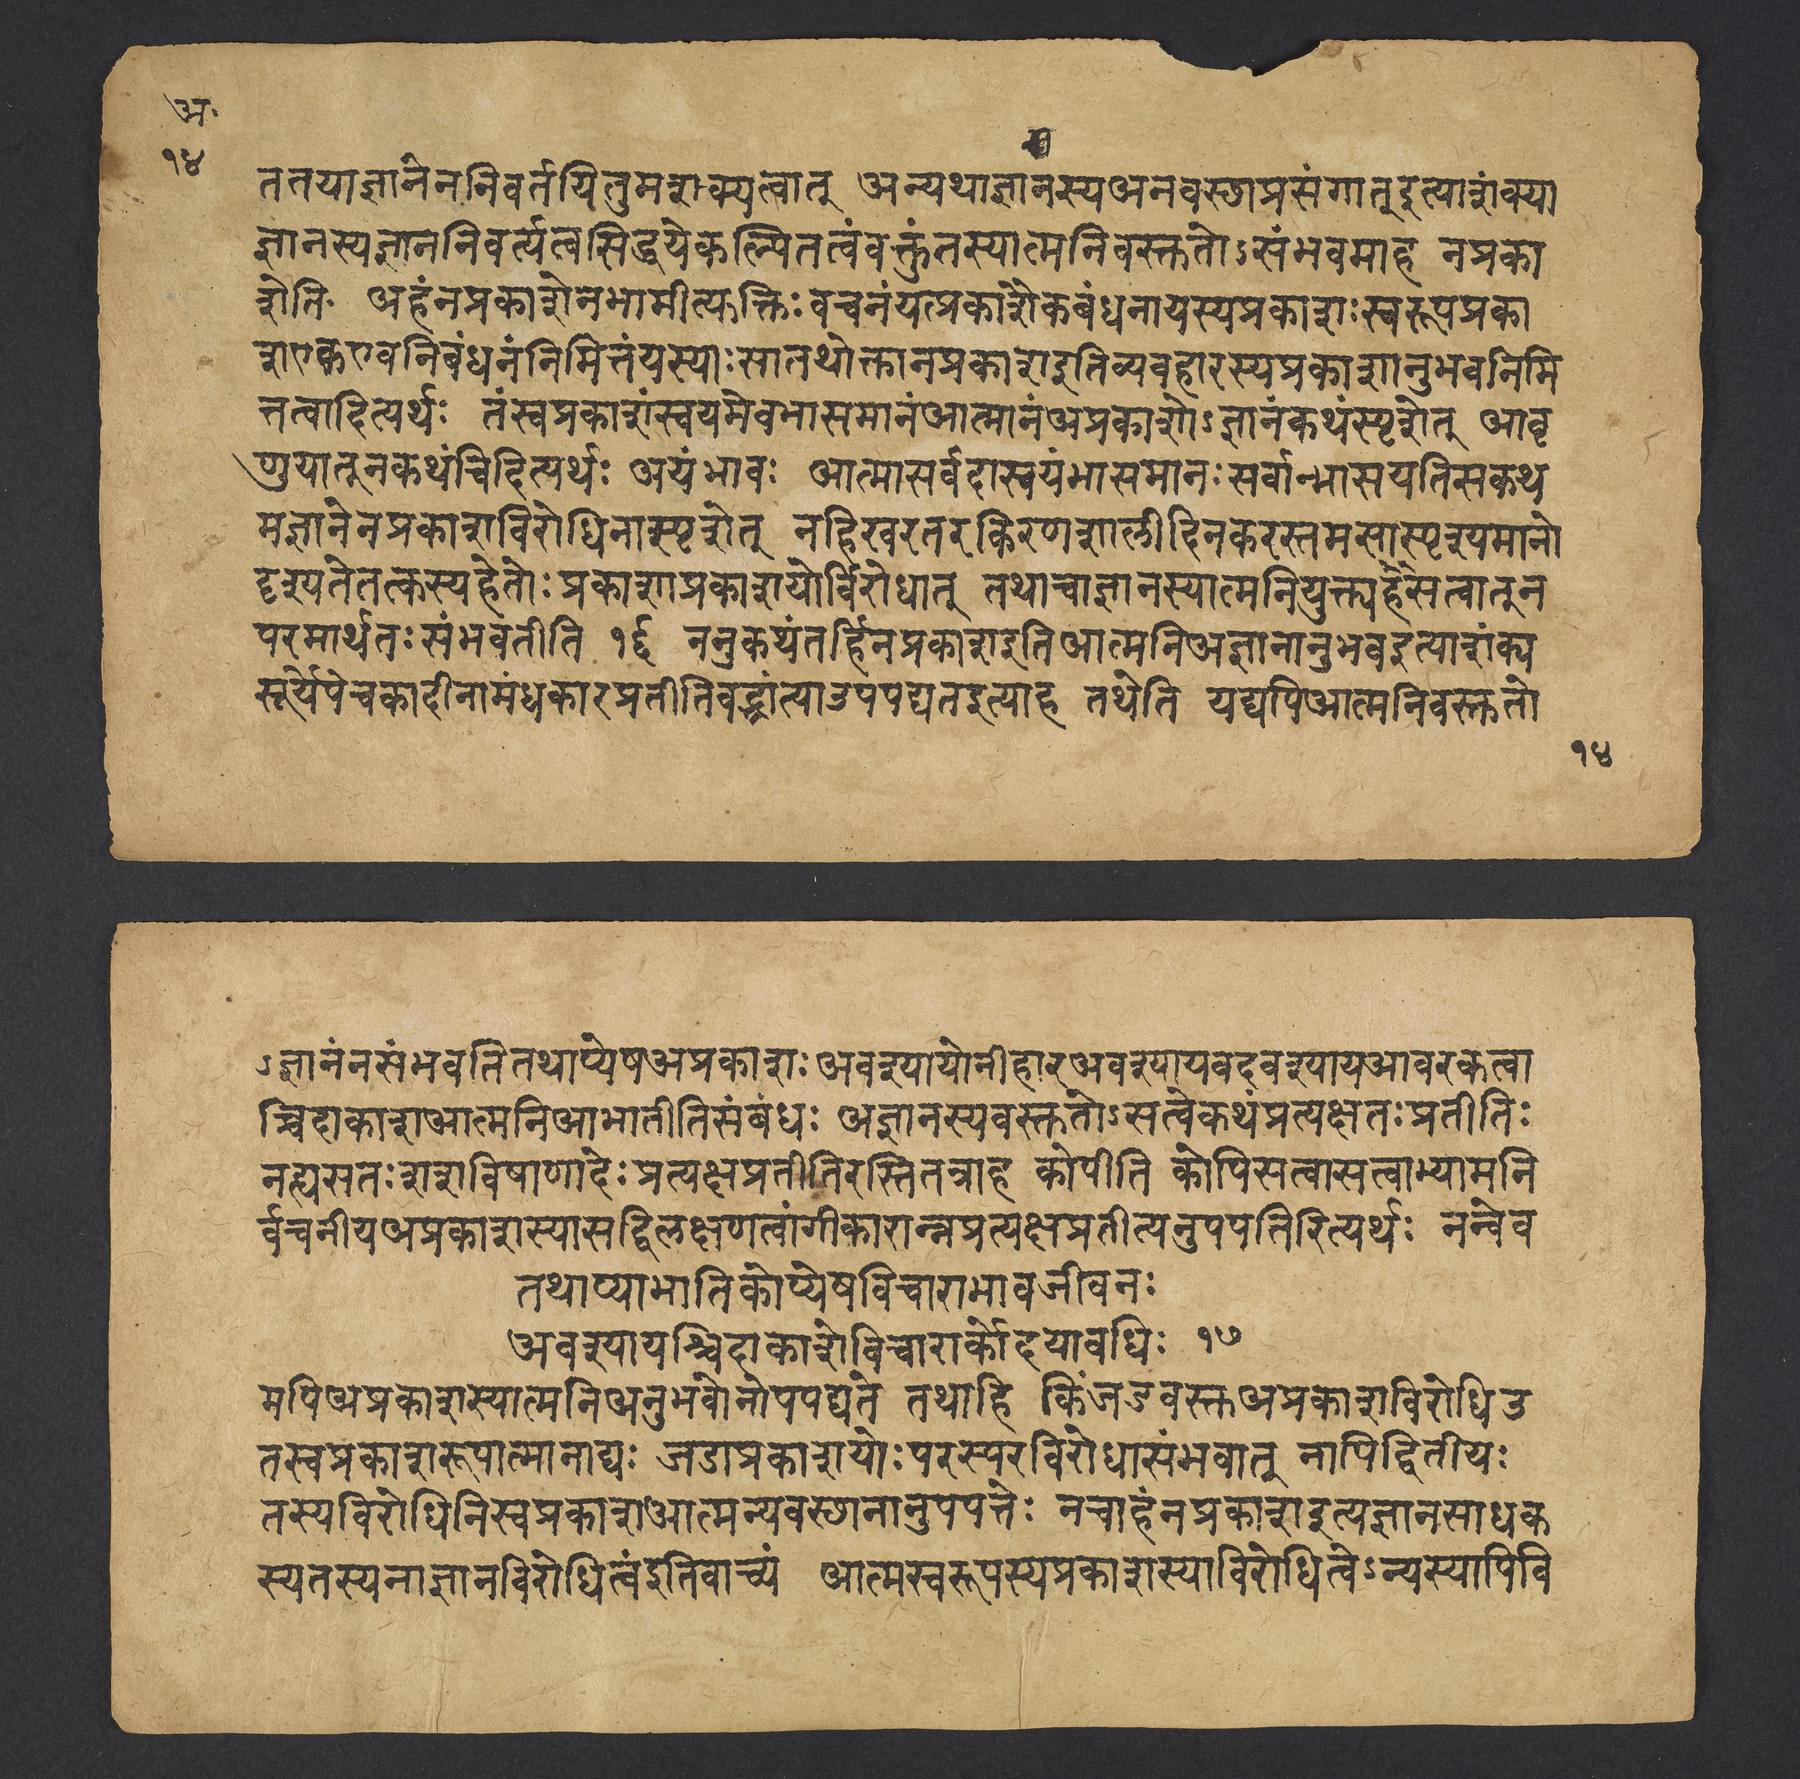 अ॰
१४
ततयाज्ञानेननिवर्तयितुमशक्यत्वात् अन्यथाज्ञानस्यअनवस्छाप्रसंगात्इत्याशंक्या
ज्ञानस्यज्ञाननिवर्त्यत्वसिद्धयेकल्पितत्वंवक्तुंतस्यात्मनिवस्तुतोऽसंभवमाह नप्रका
शेति अहंनप्रकाशेनभामीत्यक्तिःवचनंयत्प्रकाशैकबंधनायस्यप्रकाशःस्वरूपप्रका
शएकएवनिबंधनंनिमित्तंयस्याःसातथोक्तानप्रकाशइतिव्यवहारस्यप्रकाशानुभवनिमि
त्तत्वादित्यर्थः तंस्वप्रकाशंस्वयमेवभासमानंआत्मानंअप्रकाशोऽज्ञानंकथंस्पृशेत् आवृ
णुयात्नकथंचिदित्यर्थः अयंभावः आत्मासर्वदास्वयंभासमानःसर्वान्भासयतिसकथ
मज्ञानेनप्रकाशविरोधिनास्पृशेत् नहिखरतरकिरणशालीदिनकरस्तमसास्पृश्यमानो
दृश्यतेतत्कस्यहेतोःप्रकाशाप्रकाशयोर्विरोधात् तथाचाज्ञानस्यात्मनियुक्त्यर्हैसत्वात्न
परमार्थतःसंभवतीति १६ ननुकथंतर्हिनप्रकाशइतिआत्मनिअज्ञानानुभवइत्याशंक्य
सूर्येपेचकादीनामंधकारप्रतीतिवद्भ्रांत्याउपपद्यतइत्याह तथेति यद्यपिआत्मनिवस्तुतो
१४
ऽज्ञानंनसंभवतितथाप्येषअप्रकाशःअवश्यायोनीहारअवश्यायवदवश्यायआवरकत्वा
च्चिदाकाशआत्मनिआभातीतिसंबंधः अज्ञानस्यवस्तुतोऽसत्वेकथंप्रत्यक्षतःप्रतीतिः
नह्यसतःशशविषाणादेःप्रत्यक्षप्रतीतिरस्तितत्राह कोपीति कोपिसत्वासत्वाभ्यामनि
र्वचनीयअप्रकाशस्यासद्विलक्षणत्वांगीकारान्नप्रत्यक्षप्रतीत्यनुपपतिरित्यर्थः नन्वेव
तथाप्याभातिकोप्येषविचाराभावजीवनः
अवश्यायश्चिदाकाशेविचारार्कोदयावधिः १७
मपिअप्रकाशस्यात्मनिअनुभवोनोपपद्यते तथाहि किंजडवस्तुअप्रकाशविरोधिउ
तस्वप्रकाशरूपात्मानाद्यः जडाप्रकाशयोःपरस्परविरोधासंभवात् नापिद्वितीयः
तस्यविरोधिनिस्वप्रकाशआत्मन्यवस्छानानुपपत्तेः नचाहंनप्रकाशइत्यज्ञानसाधक
स्यतस्यनाज्ञानविरोधित्वंइतिवाच्यं आत्मस्वरूपस्यप्रकाशस्याविरोधित्वेऽन्यस्यापिवि